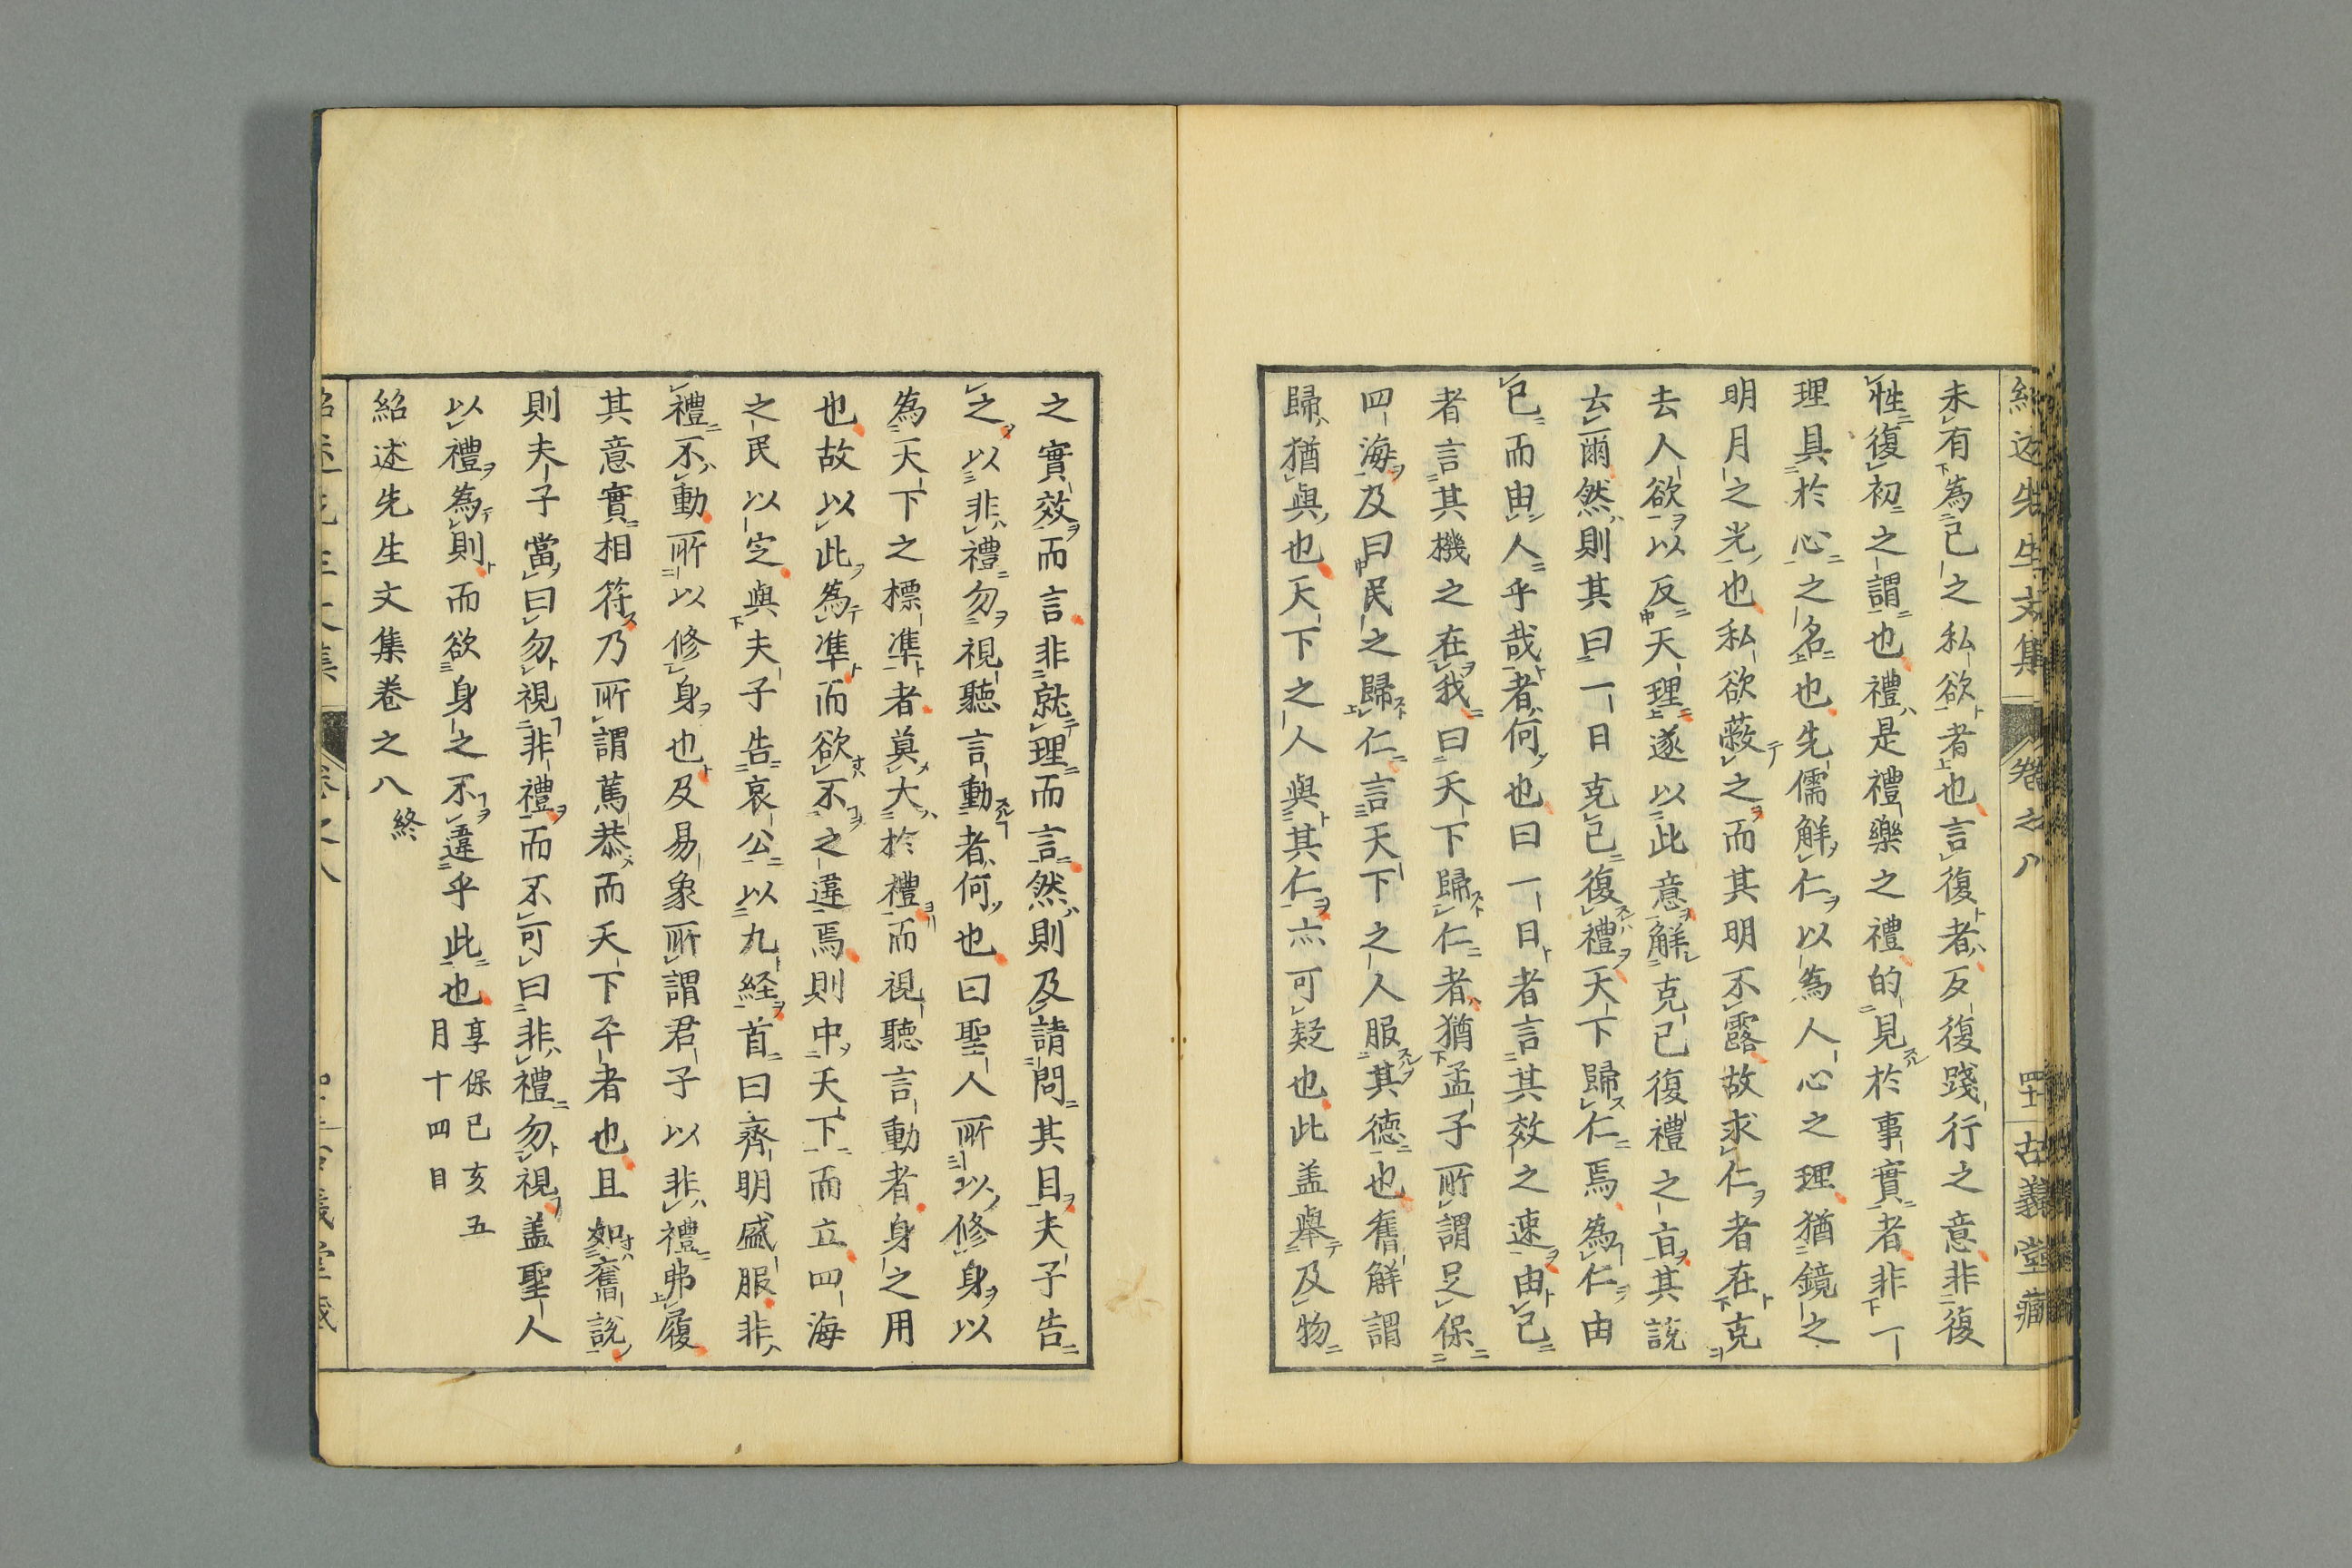 未有為己之私欲者也言復者反復踐行之意非復
性復初之謂也禮是禮樂之禮的見於事實者非一
理具於心之名也先儒解仁以為人心之理猶鏡之
明月之光也私欲蔽之而其明不露故求仁者在克
去人欲以反天理遂以此意解克己復禮之㫖其説
云爾然則其曰一日克己復禮天下歸仁焉為仁由
己而由人乎哉者何也曰一日者言其效之速由己
者言其機之在我曰天下歸仁者猶孟子所謂足保
四海及曰民之歸仁言天下之人服其德也舊解謂
歸猶與也天下之人與其仁亦可疑也此盖舉及物
之實效而言非就理而言然則及請問其目夫子告
之以非禮勿視聽言動者何也曰聖人所以修身以
為天下之標準者莫大於禮而視聽言動者身之用
也故以此為準而欲不之違焉則中天下而立四海
之民以定與夫子告哀公以九経首曰齊明盛服非
禮不動所以修身也及易象所謂君子以非禮弗履
其意實相符乃所謂篤恭而天下平者也且如舊說
則夫子當曰勿視非禮而不可曰非禮勿視盖聖人
以禮為則而欲身之不違乎此也
享保己亥五
月十四日
紹述先生文集卷之八終
紹述先生文集 卷之八 古義堂藏